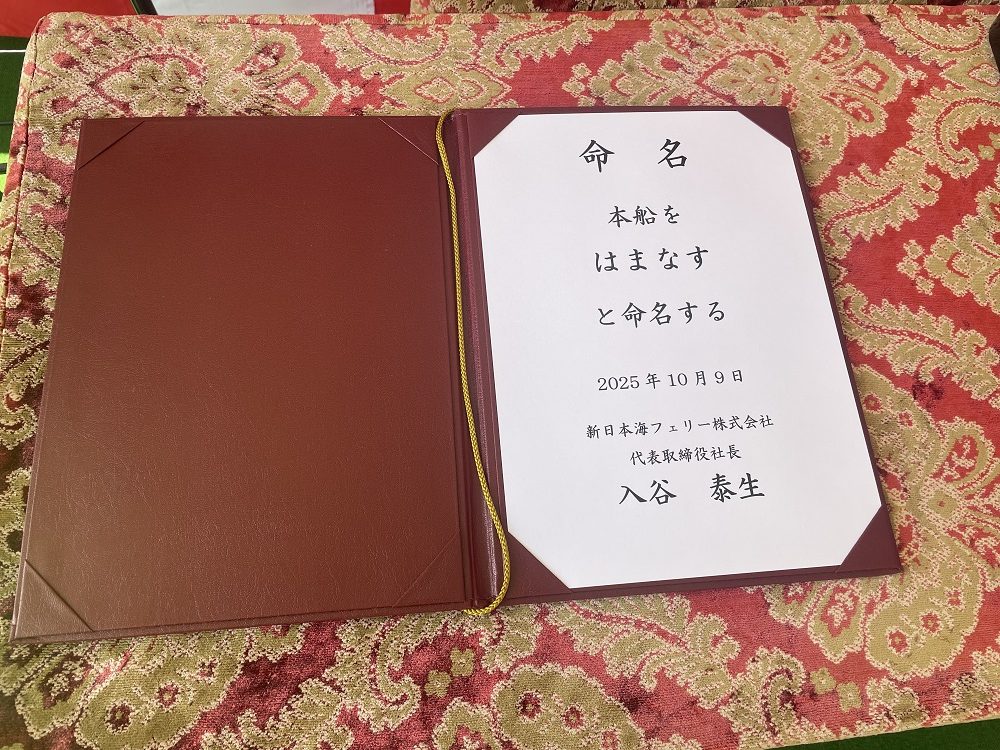 命　名
本船を
はまなす
と命名する
2025年10月9日
新日本海フェリー株式会社
代表取締役社長
入谷　泰生